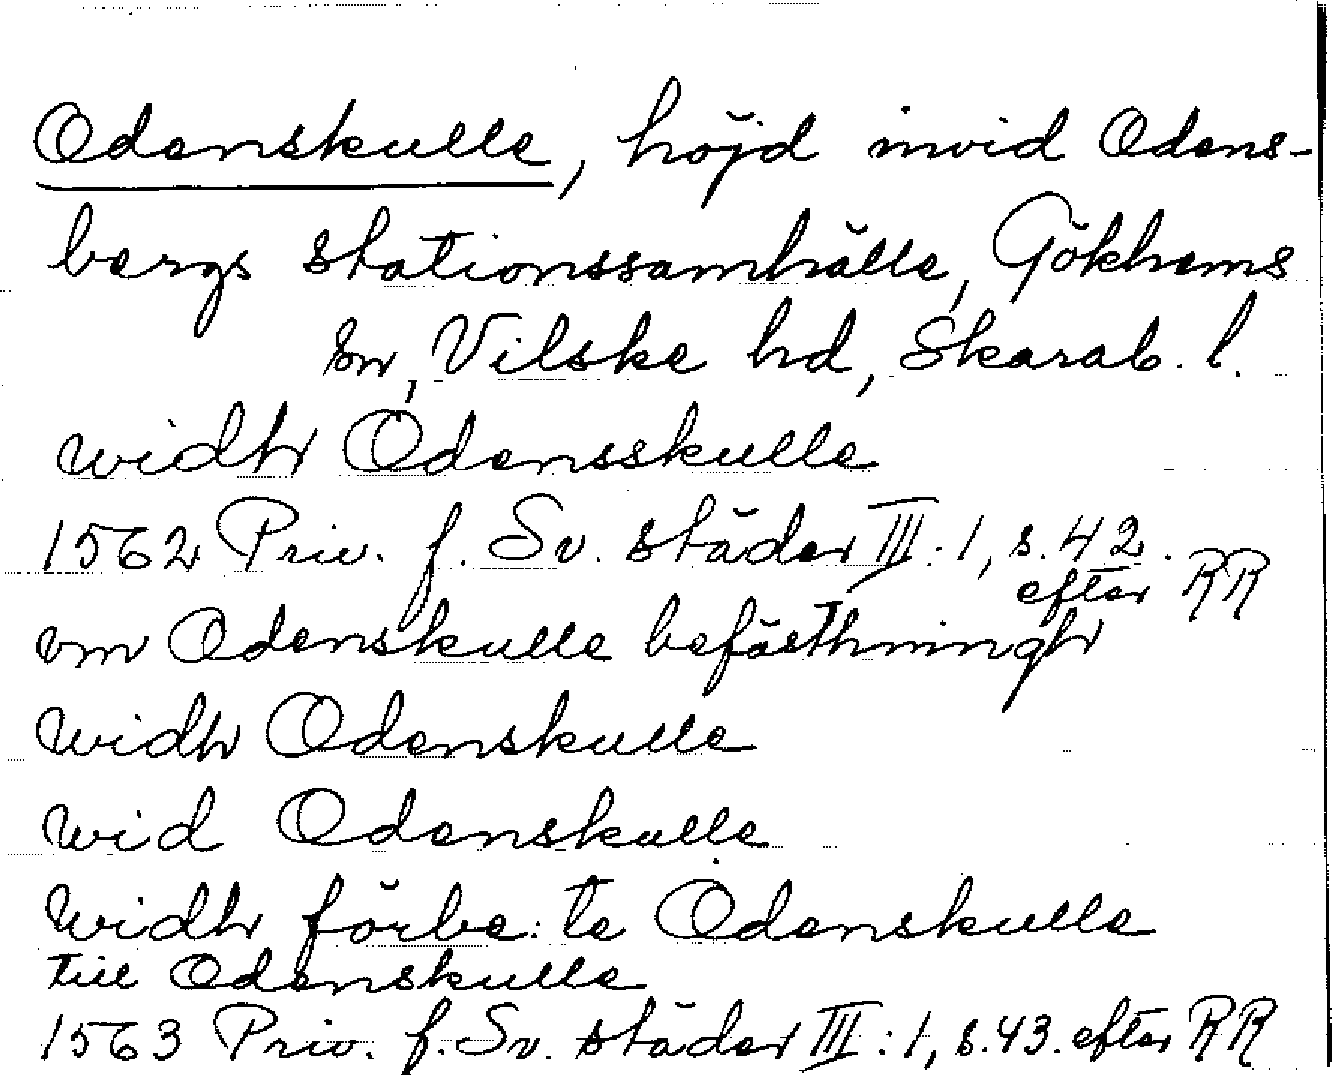 Odenskulle, höjd invid Odens-
bergs stationssamhälle, Gökhems
sn, Vilske hd, Skarab. l.
widhr Odensskulle
1562 Priv. f. Sv. städer III:1, s. 42.
efter RR
om Odenskulle befästhninghr
widhr Odenskulle
wid Odenskulle
widhr förbe:te Odenskulle
till Odenskulle
1563 Priv. f. Sv. städer III:1, s. 43. efter RR